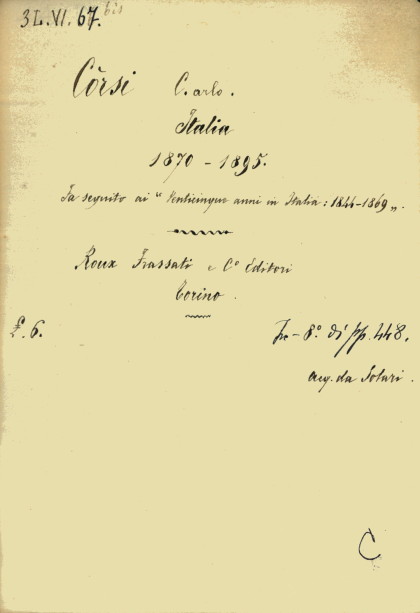 3L.VI.67. bis
Corsi Carlo.
Italia
1870 - 1895.
Fa seguito ai "Venticinque anni in Italia: 1844-1869".
Roux Frassati e Cº Editori
Torino.
£.6.
In-8º di pp. 448.
acq. da Solari.
C